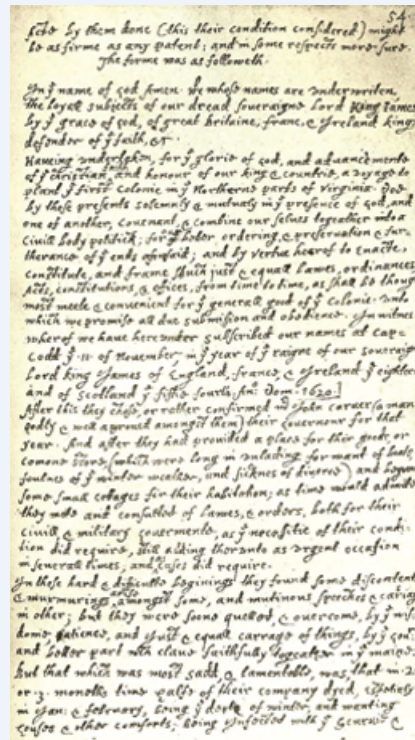 54.
Acte by them done (this their condition considered) might
be as firme as any patent; and in some respects more sure.
The forme was as followeth.
In yͤ name of god Amen. We whose names are underwriten,
the loyall subjects of our dread soveraigne Lord King James
by yͤ grace of god, of great britaine, franc, & Ireland king,
defender of yͤ faith, &c
Haveing undertaken, for yͤ glorie of god, and advancemente
of yͤ christian faith and honour of our king & countrie, a voyage to
plant yͤ first colonie in yͤ Northerne parts of Virginia. Doe
by these presents solemnly & mutualy in yͤ presence of god, and
one of another, covenant, & combine our selves togeather into a
civill body politick; for our better ordering, & preservation & fur=
therance of yͤ ends aforesaid; and by vertue hearof to enacte,
constitute, and frame such just & equall lawes, ordinances,
Acts, constitutions, & offices, from time to time, as shall be thought
most meete & convenient for yͤ generall good of yͤ Colonie: unto
which we promise all due submission and obedience. In witnes
wherof we have hereunder subscribed our names at Cap=
Codd yͤ ·11· of November, in yͤ year of yͤ raigne of our soveraigne
Lord king James of England, france, & Ireland yͤ eighteenth
and of Scotland yͤ fiftie fourth. An: Dom. 1620.]
After this they chose, or rather confirmed mʳ John carver (a man
godly & well approved amongst them) their Governour for that
year. And after they had provided a place for their goods, or
comone store, (which were long in unlading for want of boats,
foulnes of yͤ winter weather, and sicknes of diverce) and begune
some small cottages for their habitation; as time would admitte
they mette and consulted of lawes, & orders, both for their
civill & military Governmente, as yͤ necessitie of their condi=
tion did require, still adding therunto as urgent occasion
in severall times, and as cases did require.
In these hard & difficulte beginings they found some discontents
& murmurings arise amongst some, and mutinous speeches & carriags
in other; but they were soone quelled, & overcome, by yͤ wis=
dome, patience, and just & equall carrage of things, by yͤ Govr
and better part wch clave faithfully togeather in yͤ maine.
But that which was most sadd, & lamentable, was, that in 2.
or .3. moneths time halfe of their company dyed, espetialy
in Jan: & february, being yͤ depth of winter, and wanting
houses & other comforts; being infected with yͤ Scurvie &